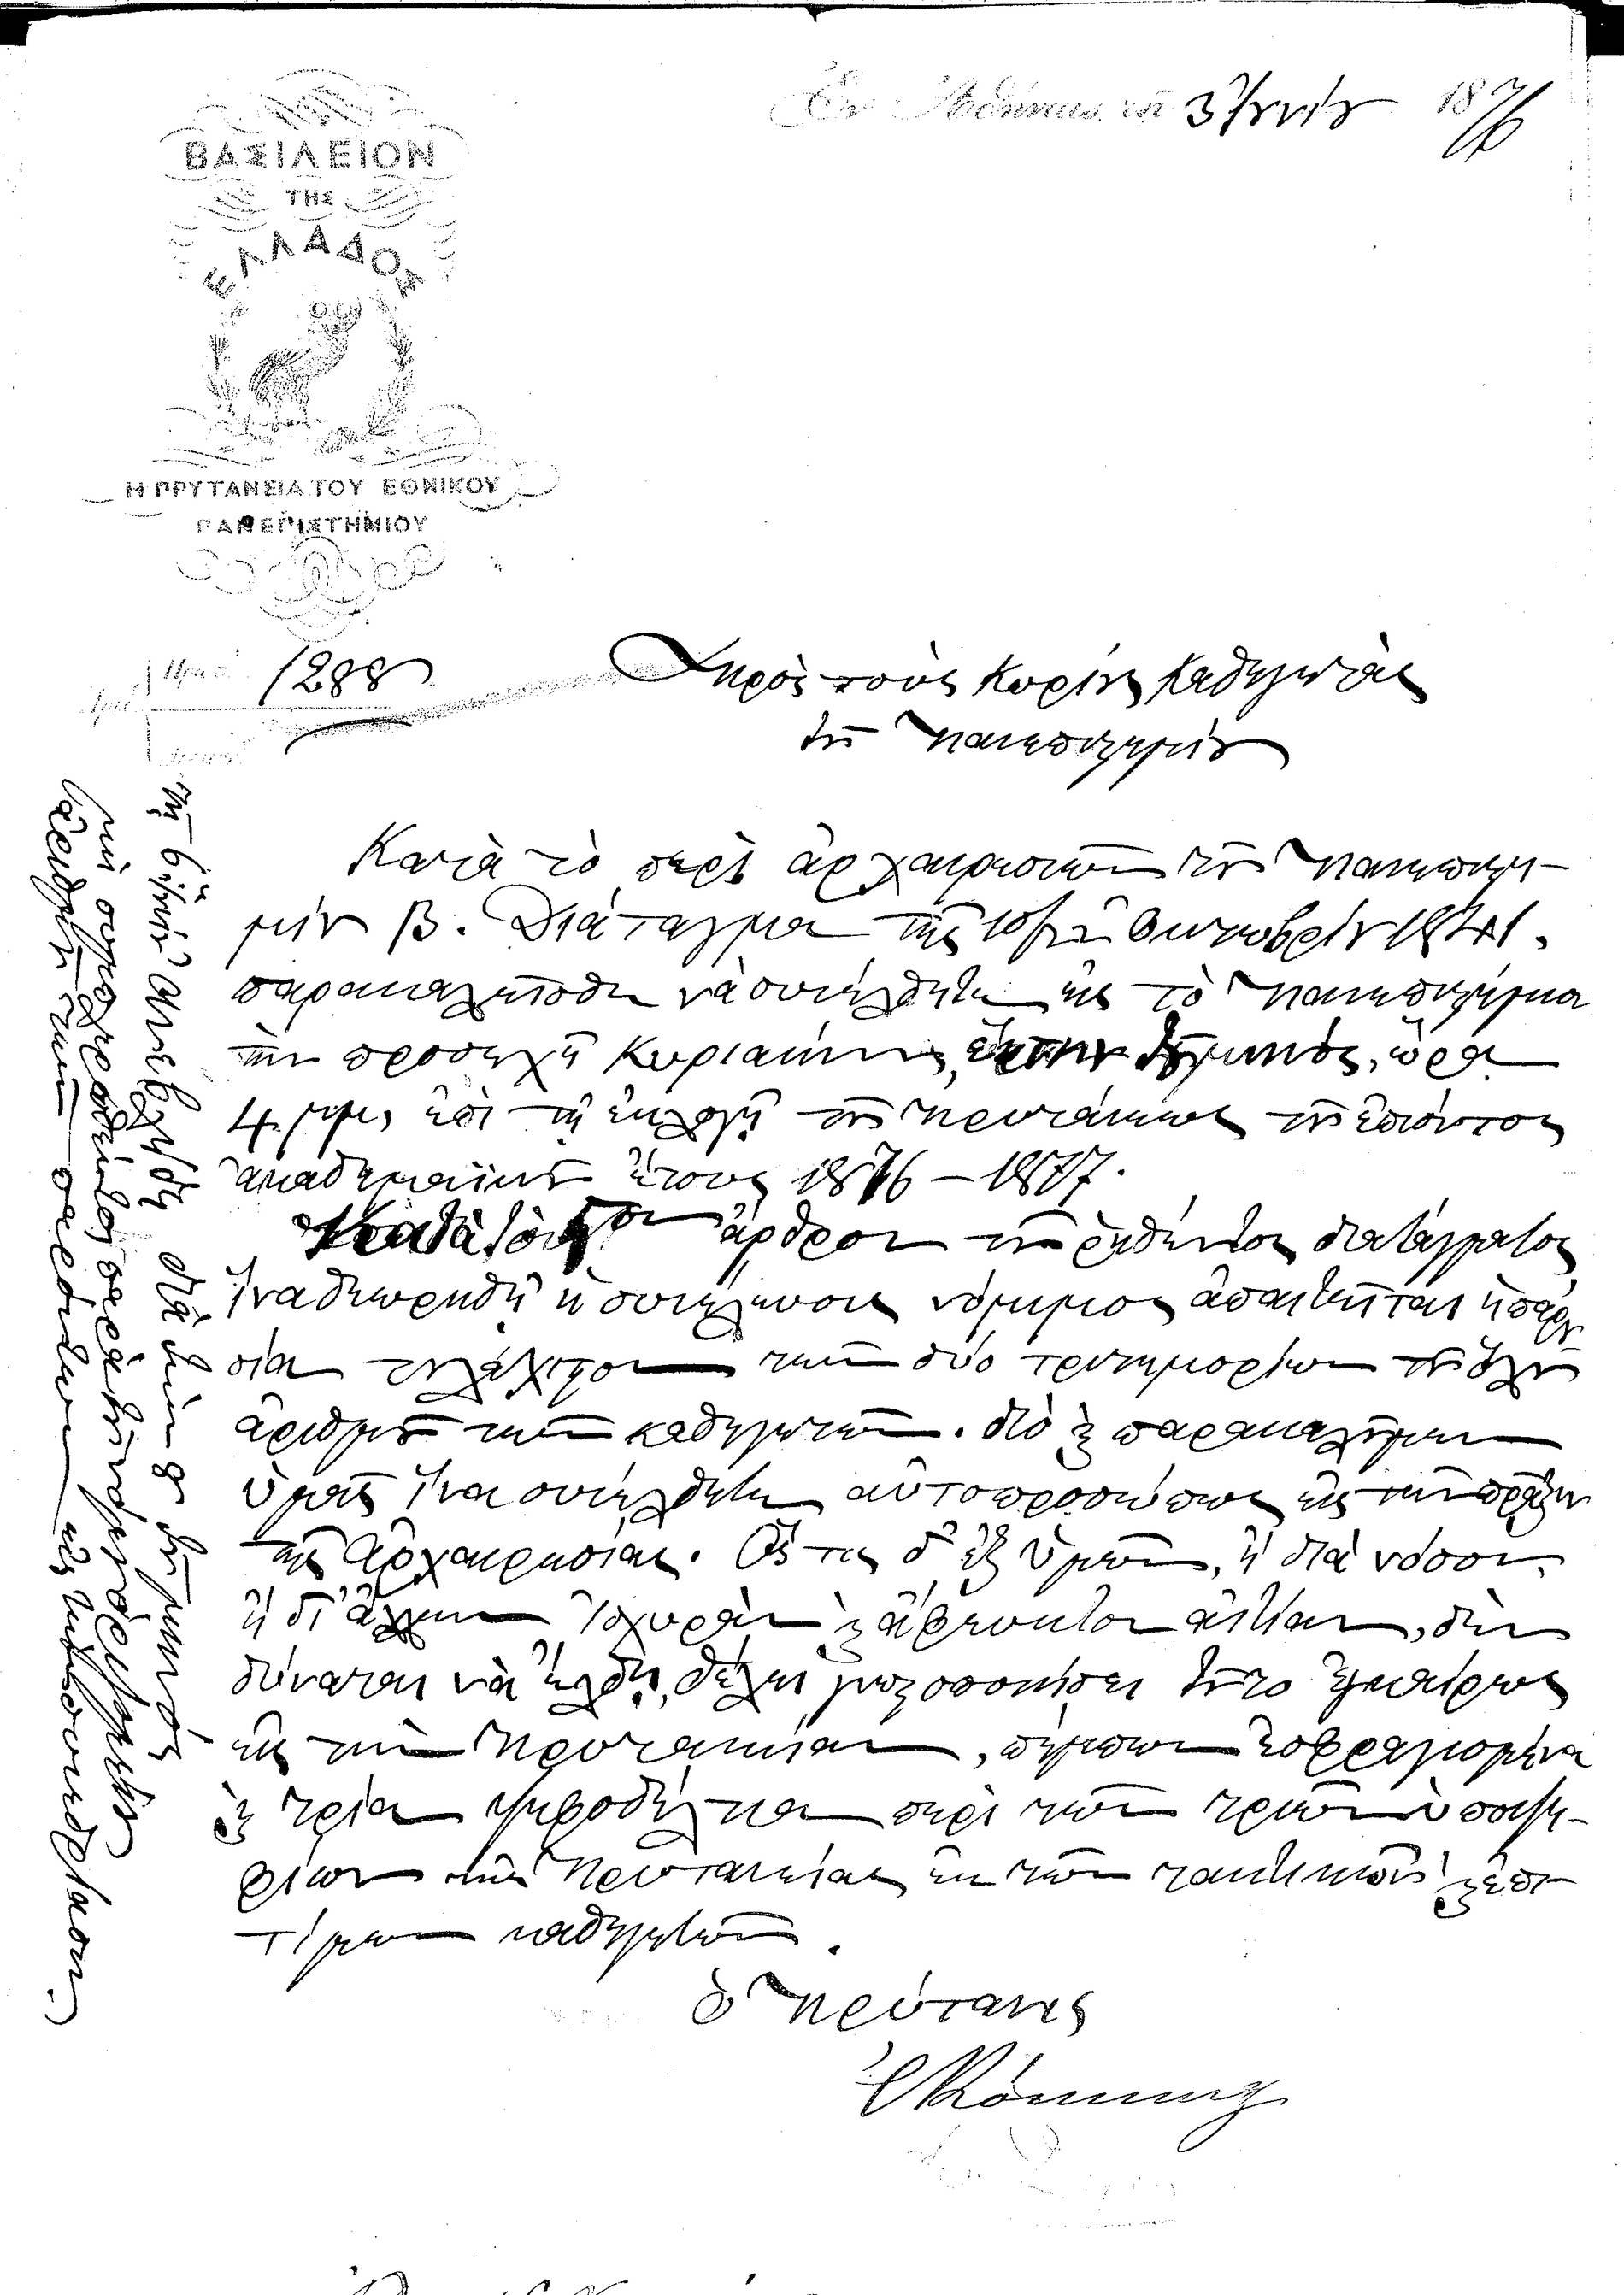 Ἐν Ἀθήναις τῇ 3 Ἰουνίου 1876
ΒΑΣΙΛΕΙΟΝ
ΤΗΣ
ΕΛΛΑΔΟΣ
Η ΠΡΥΤΑΝΕΙΑ ΤΟΥ ΕΘΝΙΚΟΥ
ΠΑΝΕΠΙΣΤΗΜΙΟΥ
1288
Πρὸς τοὺς Κυρίους Καθηγητὰς
τοῦ Πανεπιστημίου
Κατὰ τὸ περὶ ἀρχαιρεσιῶν τοῦ Πανεπιστη-
μίου Β. Διάταγμα τῆς Ὀκτωβρίου
παρακαλεῖσθε νὰ συνέλθητε εἰς τὸ Πανεπιστήμιον
τὴν προσεχῆ Κυριακὴν, ὥρᾳ
4 μ.μ., ἐπὶ τῇ ἐκλογῇ τοῦ Πρυτάνεως τοῦ ἐπιόντος
ἀκαδημαϊκοῦ ἔτους 1876 – 1877.
Κατὰ τὸ ἄρθρον τοῦ ῥηθέντος διατάγματος
ἵνα θεωρηθῇ ἡ συνέλευσις νόμιμος ἀπαιτεῖται ἡ παρου-
σία τοὐλάχιστον τῶν δύο τριτημορίων τοῦ ὅλου
ἀριθμοῦ τῶν καθηγητῶν. διὸ καὶ παρακαλοῦμεν
ὑμᾶς ἵνα συνέλθητε αὐτοπροσώπως εἰς τὴν πρᾶξιν
τῆς ἀρχαιρεσίας. Ὅστις δ' ἐξ ὑμῶν, ἢ διὰ νόσον
ἢ δι' ἄλλην ἰσχυρὰν καὶ ἄφευκτον αἰτίαν, δὲν
δύναται νὰ ἔλθῃ, θέλει γνωστοποιήσει τοῦτο ἐγκαίρως
εἰς τὴν Πρυτανείαν, πέμπων ἐσφραγισμένα
καὶ τρία ψηφοδέλτια περὶ τῶν τριῶν ὑποψη-
φίων τῆς Πρυτανείας ἐκ τῶν τακτικῶν καὶ ἐπι-
τίμων καθηγητῶν.
Ὁ Πρύτανις
Κόκκινος
Τῇ 6 Ἰουνίου ἀνεβλήθη διὰ
μὴ
τῶν παρόντων